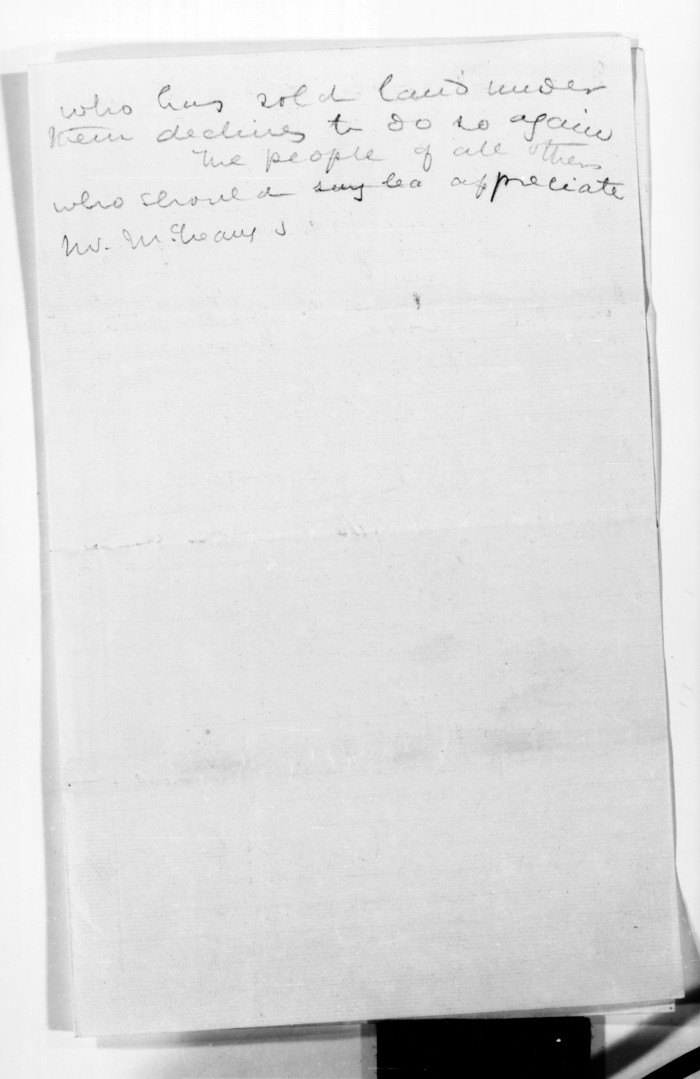 who has sold land under
them declines to do so again
The people of all others
who should say be appreciate
Mr. McLean's